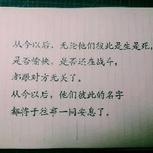 从今以后，无论他们彼此是生是死，
是否愉快，是否还在战斗，
都跟对方无关了。
从今以后，他们彼此的名字
都将于往事一同安息了。